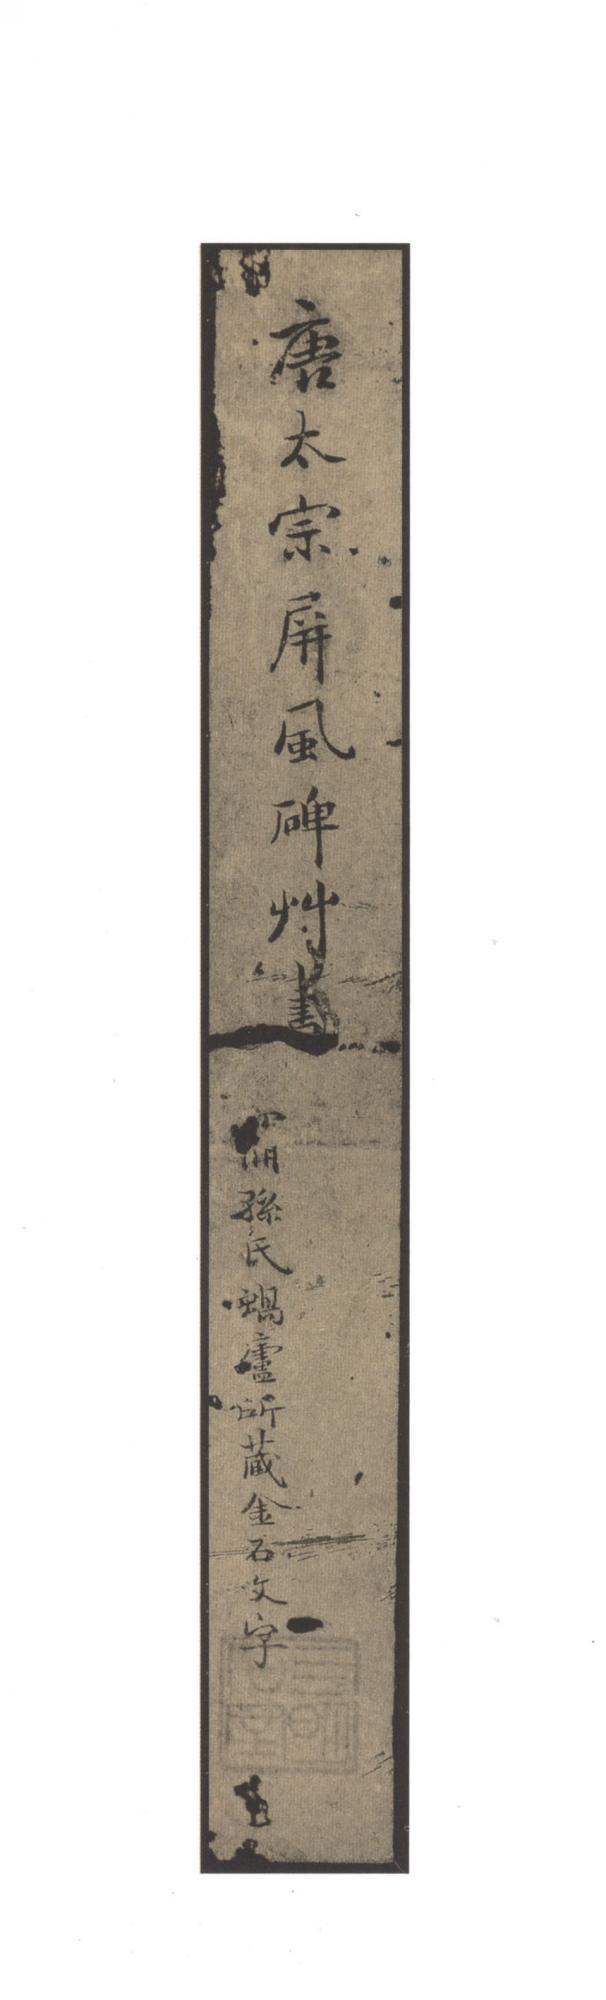 唐太宗屏風碑艸書
孫氏蝸廬所藏金石文字